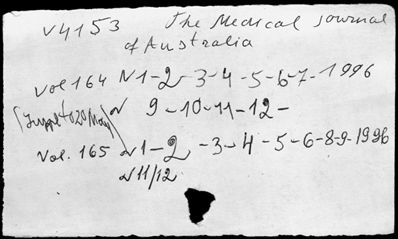 V4153 The Medical Journal
of Australia
Vol 164 N1-2-3-4-5-6-7-1996
N 9-10-11-12-
(Suppl to 20 May)
Vol. 165 N1-2-3-4-5-6-8-9-1996
N11/12